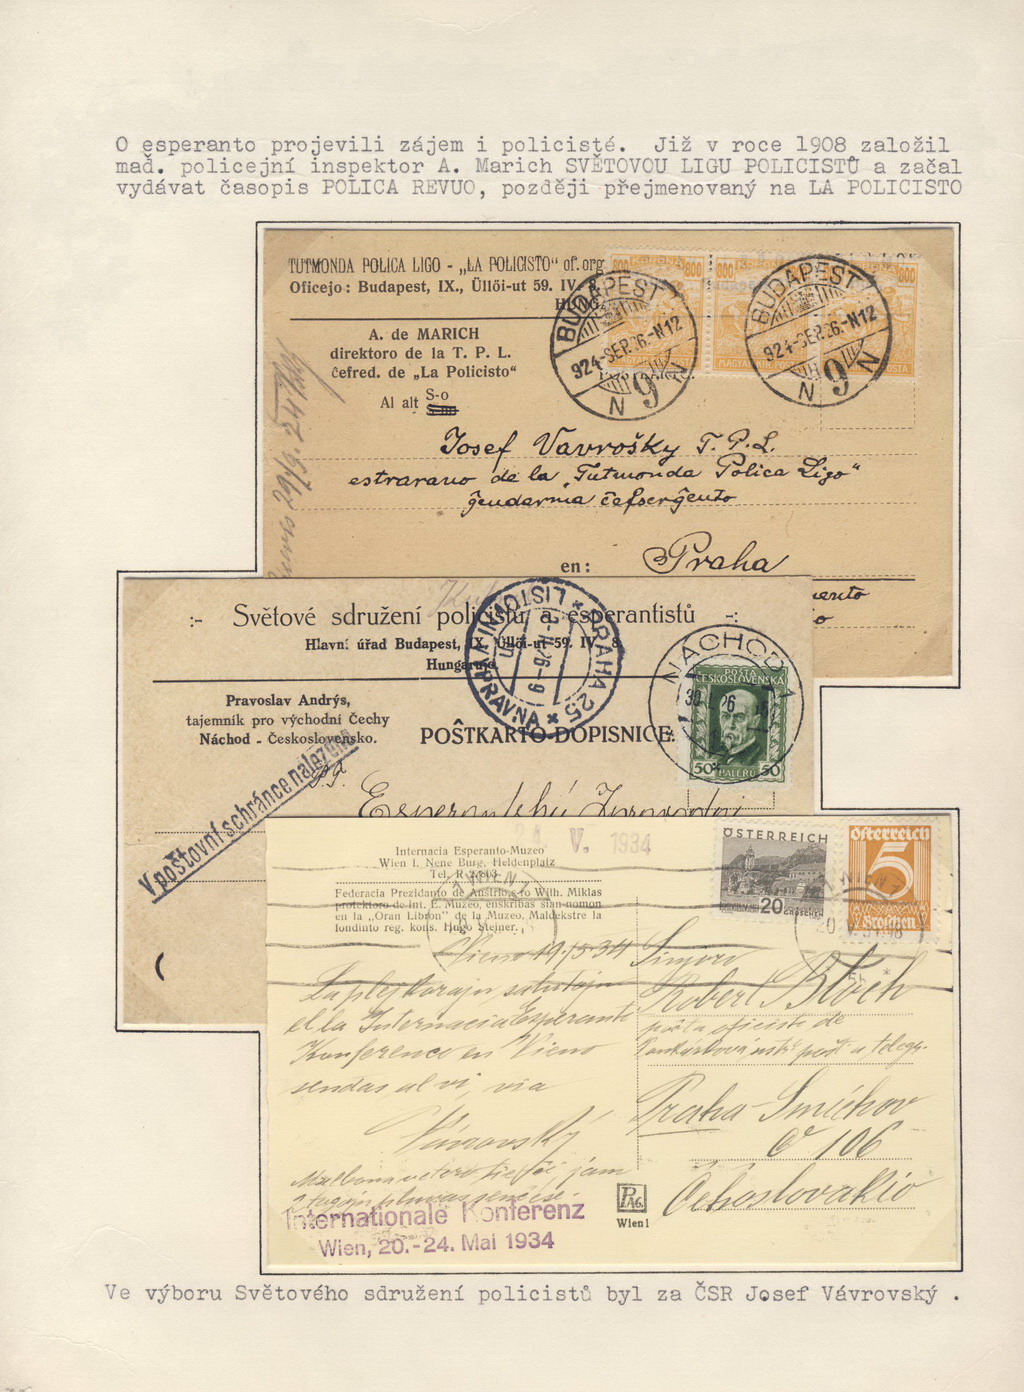 O esperanto projevili zájem i policisté. Již v roce 1908 založil
maď. policejní inspektor A. Marich SVĚTOVOU LIGU POLICISTŮ a začal
vydávat časopis POLICA REVUO, později přejmenovaný na LA POLICISTO
TUTMONDA POLICA LIGO - „LA POLICISTO“ of. org
Oficejo: Budapest, IX., Üllői-ut 59. IV. 8.
A. de MARICH
direktoro de la T. P. L.
ĉefred. de „La Policisto“
Al alt S-o
800 KORONA 800
MAGYAR KIR. POSTA
BUDAPEST
924-SEP.26.-N12
N 9 N
BUDAPEST
924-SEP.26.-N12
N 9 N
Josef Vavroŝky T. P. L.
estrarano de la „Tutmonda Polica Ligo“
ĝendarma ĉefserĝento
en: Praha
:- Světové sdružení policistů a esperantistů -:
Hlavní úřad Budapest, IX. Üllői-ut 59. IV. 8.
Hungarujo.
PRAHA 25
LISTOVNÍ
NÁCHOD 1
POŠTA
ČESKOSLOVENSKÁ
50 HALÉŘŮ 50
Pravoslav Andrýs,
tajemník pro východní Čechy
Náchod - Československo.
POŜTKARTO-DOPISNICE.
V poštovní schránce nalezeno
P.T.
Esperantský Zpravodaj
24. V. 1934
Internacia Esperanto-Muzeo
Wien I. Neue Burg, Heldenplatz
Federacia Prezidanto de Austrio, s-ro Wilh. Miklas
protektoro de Int. E. Muzeo, enskribas sian nomon
en la „Oran Libron“ de la Muzeo. Maldekstre la
fondinto reg. kons. Hugo Steiner.
ÖSTERREICH
20 GROSCHEN
Österreich
5
Groschen
Vieno 19./5.34
La plej korajn salutojn
el la Internacia Esperanto
Konferenco en Vieno
sendas al vi, via
Vávrovský
Sinjoro
Robert Bloch
poŝta oficisto de
Praha-Smíchov
Ĉehoslovakio
PAG.
Wien 1
Internationale Konferenz
Wien, 20.-24. Mai 1934
Ve výboru Světového sdružení policistů byl za ČSR Josef Vávrovský .